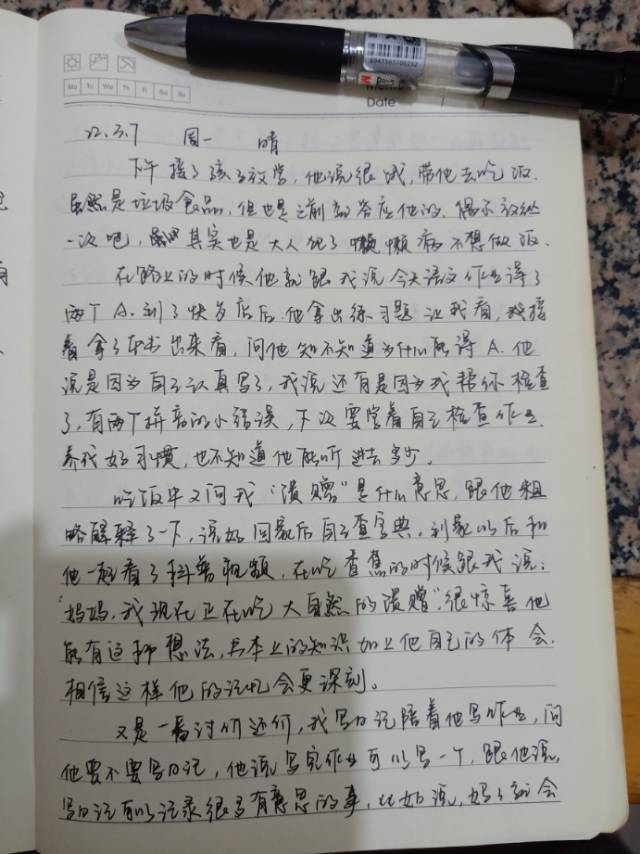 Mo Tu We Th Fr Sa Su
Date
22.3.7 周一 晴
下午接了孩子放学,他说很饿,带他去吃饭.
虽然是垃圾食品,但也是之前就答应他的.偶尔放纵
一次吧,其实也是大人犯了懒懒病不想做饭.
在路上的时候他就跟我说今天语文作业得了
两个A.到了快餐店后,他拿出练习题让我看,我接
着拿了本书出来看,问他知不知道为什么能得A.他
说是因为自己认真写了,我说还有是因为我帮你检查
了,有两个拼音的小错误,下次要学着自己检查作业.
养成好习惯,也不知道他能听进去多少。
吃饭中又问我“馈赠”是什么意思,跟他粗
略解释了一下,说好回家后自己查字典,到家以后和
他一起看了科普视频,在吃香蕉的时候跟我说:
“妈妈,我现在正在吃大自然的馈赠”.很惊喜他
能有这种想法,书本上的知识加上他自己的体会.
相信这样他的记忆会更深刻。
又是一番讨价还价,我写日记陪着他写作业,问
他要不要写日记,他说写完作业可以写一个,跟他说,
写日记可以记录很多有意思的事,比如说,妈妈就会